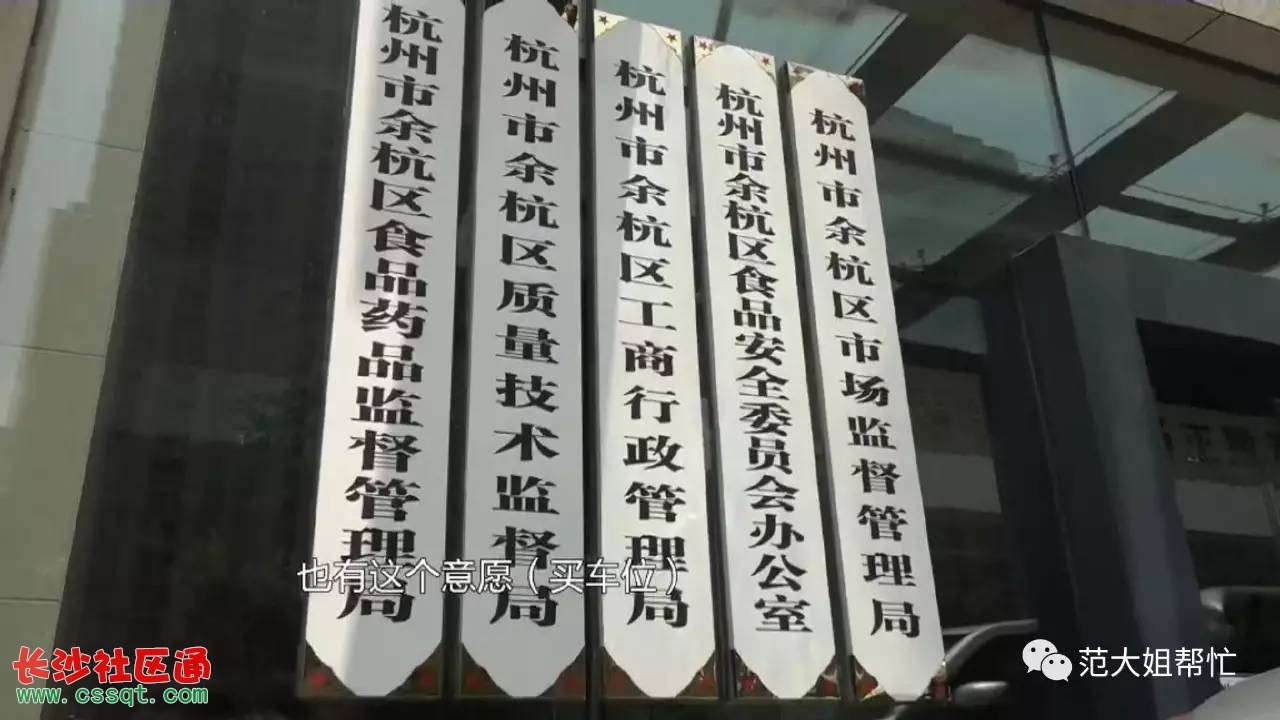 杭州市余杭区食品药品监督管理局
杭州市余杭区质量技术监督局
杭州市余杭区工商行政管理局
杭州市余杭区食品安全委员会办公室
杭州市余杭区市场监督管理局
也有这个意愿（买车位）
长沙社区通
www.cssqt.com
范大姐帮忙